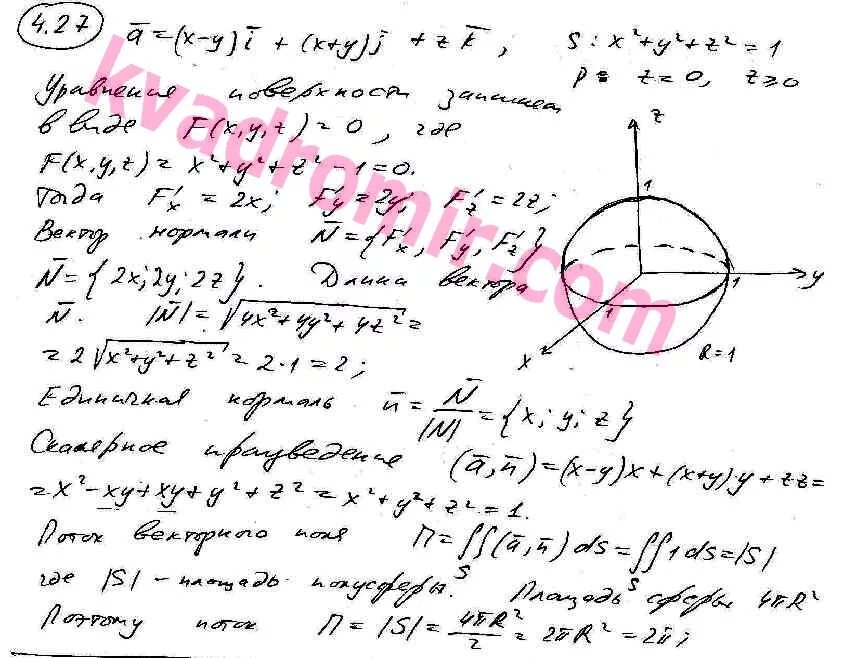 4.27 ā = (x-y)ī + (x+y)j̄ + z k̄, S: x²+y²+z²=1
P: z=0, z≥0
Уравнение поверхности запишем
в виде F(x,y,z)=0, где
F(x,y,z)= x²+y²+z²-1=0.
Тогда F'x = 2x; F'y = 2y; F'z = 2z;
Вектор нормали N̄ = {F'x, F'y, F'z}
N̄ = {2x; 2y; 2z}. Длина вектора
N̄. |N̄| = √(4x²+4y²+4z²) =
= 2√(x²+y²+z²) = 2·1 = 2;
Единичная нормаль n̄ = N̄/|N̄| = {x; y; z}
Скалярное произведение (ā, n̄) = (x-y)x+(x+y)y+zz=
= x²-xy+xy+y²+z² = x²+y²+z² = 1.
Поток векторного поля П = ∬(ā, n̄) dS = ∬ 1 dS = |S|
S S
где |S| - площадь полусферы. Площадь сферы 4πR²
Поэтому поток П = |S| = 4πR²/2 = 2πR² = 2π;
z
1
y
1
1
x
R=1
kvadromir.com